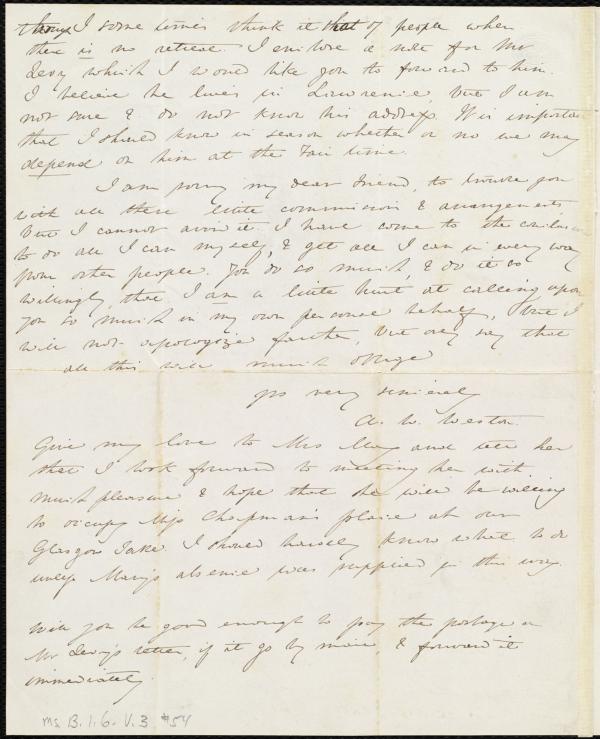 I some times think it that of people when
there is no retreat. I enclose a note for Mr
Levy which I would like you to forward to him.
I believe he lives in Lawrence, but I am
not sure & do not know his address. It is important
that I should know in season whether or no we may
depend on him at the Fair time.
I am sorry my dear friend, to trouble you
with all these little commissions & arrangements,
but I cannot avoid it. I have come to the conclusion
to do all I can myself, & get all I can in every way
from other people. You do so much, & do it so
willingly, that I am a little hurt at calling upon
you so much in my own personal behalf, but I
will not apologize farther, but only say that
all this will much oblige
yrs very sincerely
A. W. Weston.
Give my love to Mrs May and tell her
that I look forward to meeting her with
much pleasure & hope that she will be willing
to occupy Miss Chapman's place at our
Glasgow Table. I should hardly know what to do
unless Mary's absence was supplied in this way.
Will you be good enough to pay the postage on
Mr Levy's letter, if it go by mail, & forward it
immediately.
Ms. B. 1. 6. V. 3 #54